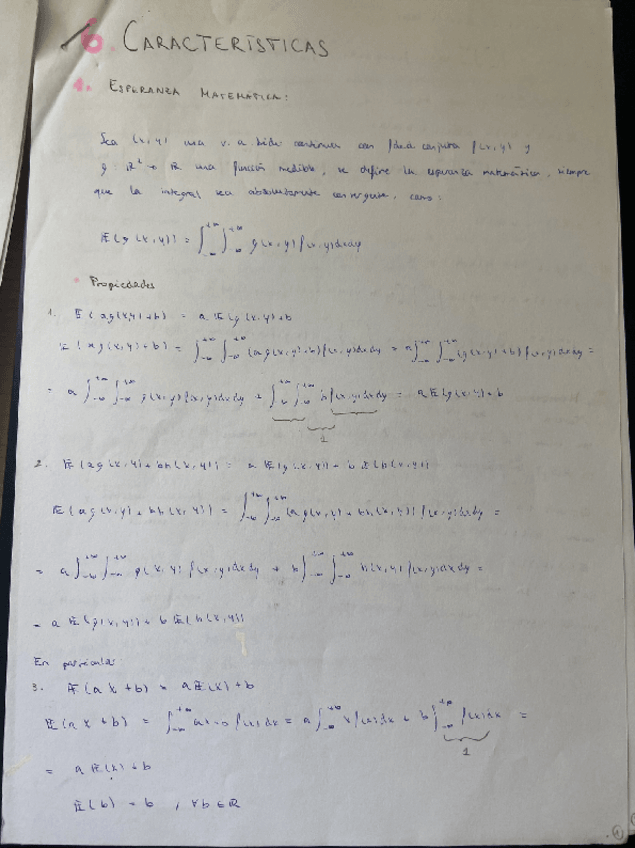 6. CARACTERÍSTICAS
1. ESPERANZA MATEMÁTICA:
Sea (x,y) una v.a. bidi continua con conjunta f(x,y) y
g: ℝ² → ℝ una función medible, se define la esperanza matemática, siempre
que la integral sea absolutamente convergente, como:
E(g(x,y)) = ∫_{-∞}^{+∞} ∫_{-∞}^{+∞} g(x,y) f(x,y) dx dy
• Propiedades
1. E(ag(x,y)+b) = a E(g(x,y)+b
E(ag(x,y)+b) = ∫_{-∞}^{+∞} ∫_{-∞}^{+∞} (ag(x,y)+b) f(x,y) dx dy = a∫_{-∞}^{+∞} ∫_{-∞}^{+∞} (g(x,y)+b) f(x,y) dx dy =
= a ∫_{-∞}^{+∞} ∫_{-∞}^{+∞} g(x,y) f(x,y) dx dy + ∫_{-∞}^{+∞} ∫_{-∞}^{+∞} b f(x,y) dx dy = a E(g(x,y)+b
1
2. E(ag(x,y)+bh(x,y)) = a E(g(x,y)) + b E(h(x,y))
E(ag(x,y)+bh(x,y)) = ∫_{-∞}^{+∞} ∫_{-∞}^{+∞} (ag(x,y)+bh(x,y)) f(x,y) dx dy =
= a ∫_{-∞}^{+∞} ∫_{-∞}^{+∞} g(x,y) f(x,y) dx dy + b ∫_{-∞}^{+∞} ∫_{-∞}^{+∞} h(x,y) f(x,y) dx dy =
= a E(g(x,y)) + b E(h(x,y))
En particular
3. E(ax+b) = aE(x)+b
E(ax+b) = ∫_{-∞}^{+∞} f(x) dx = a ∫_{-∞}^{+∞} x f(x) dx + b ∫_{-∞}^{+∞} f(x) dx =
1
= a E(x) + b
E(b) = b , ∀b ∈ ℝ